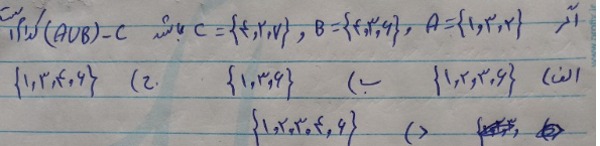 اگر A={۱,۳,۲} , B={۴,۳,۶} , C={۴,۲,۷} باشد (A∪B)-C کدام است
الف) {۱,۲,۳,۶} ب) {۱,۳,۶} ج) {۱,۳,۴,۶}
د) {۱,۲,۳,۴,۶}